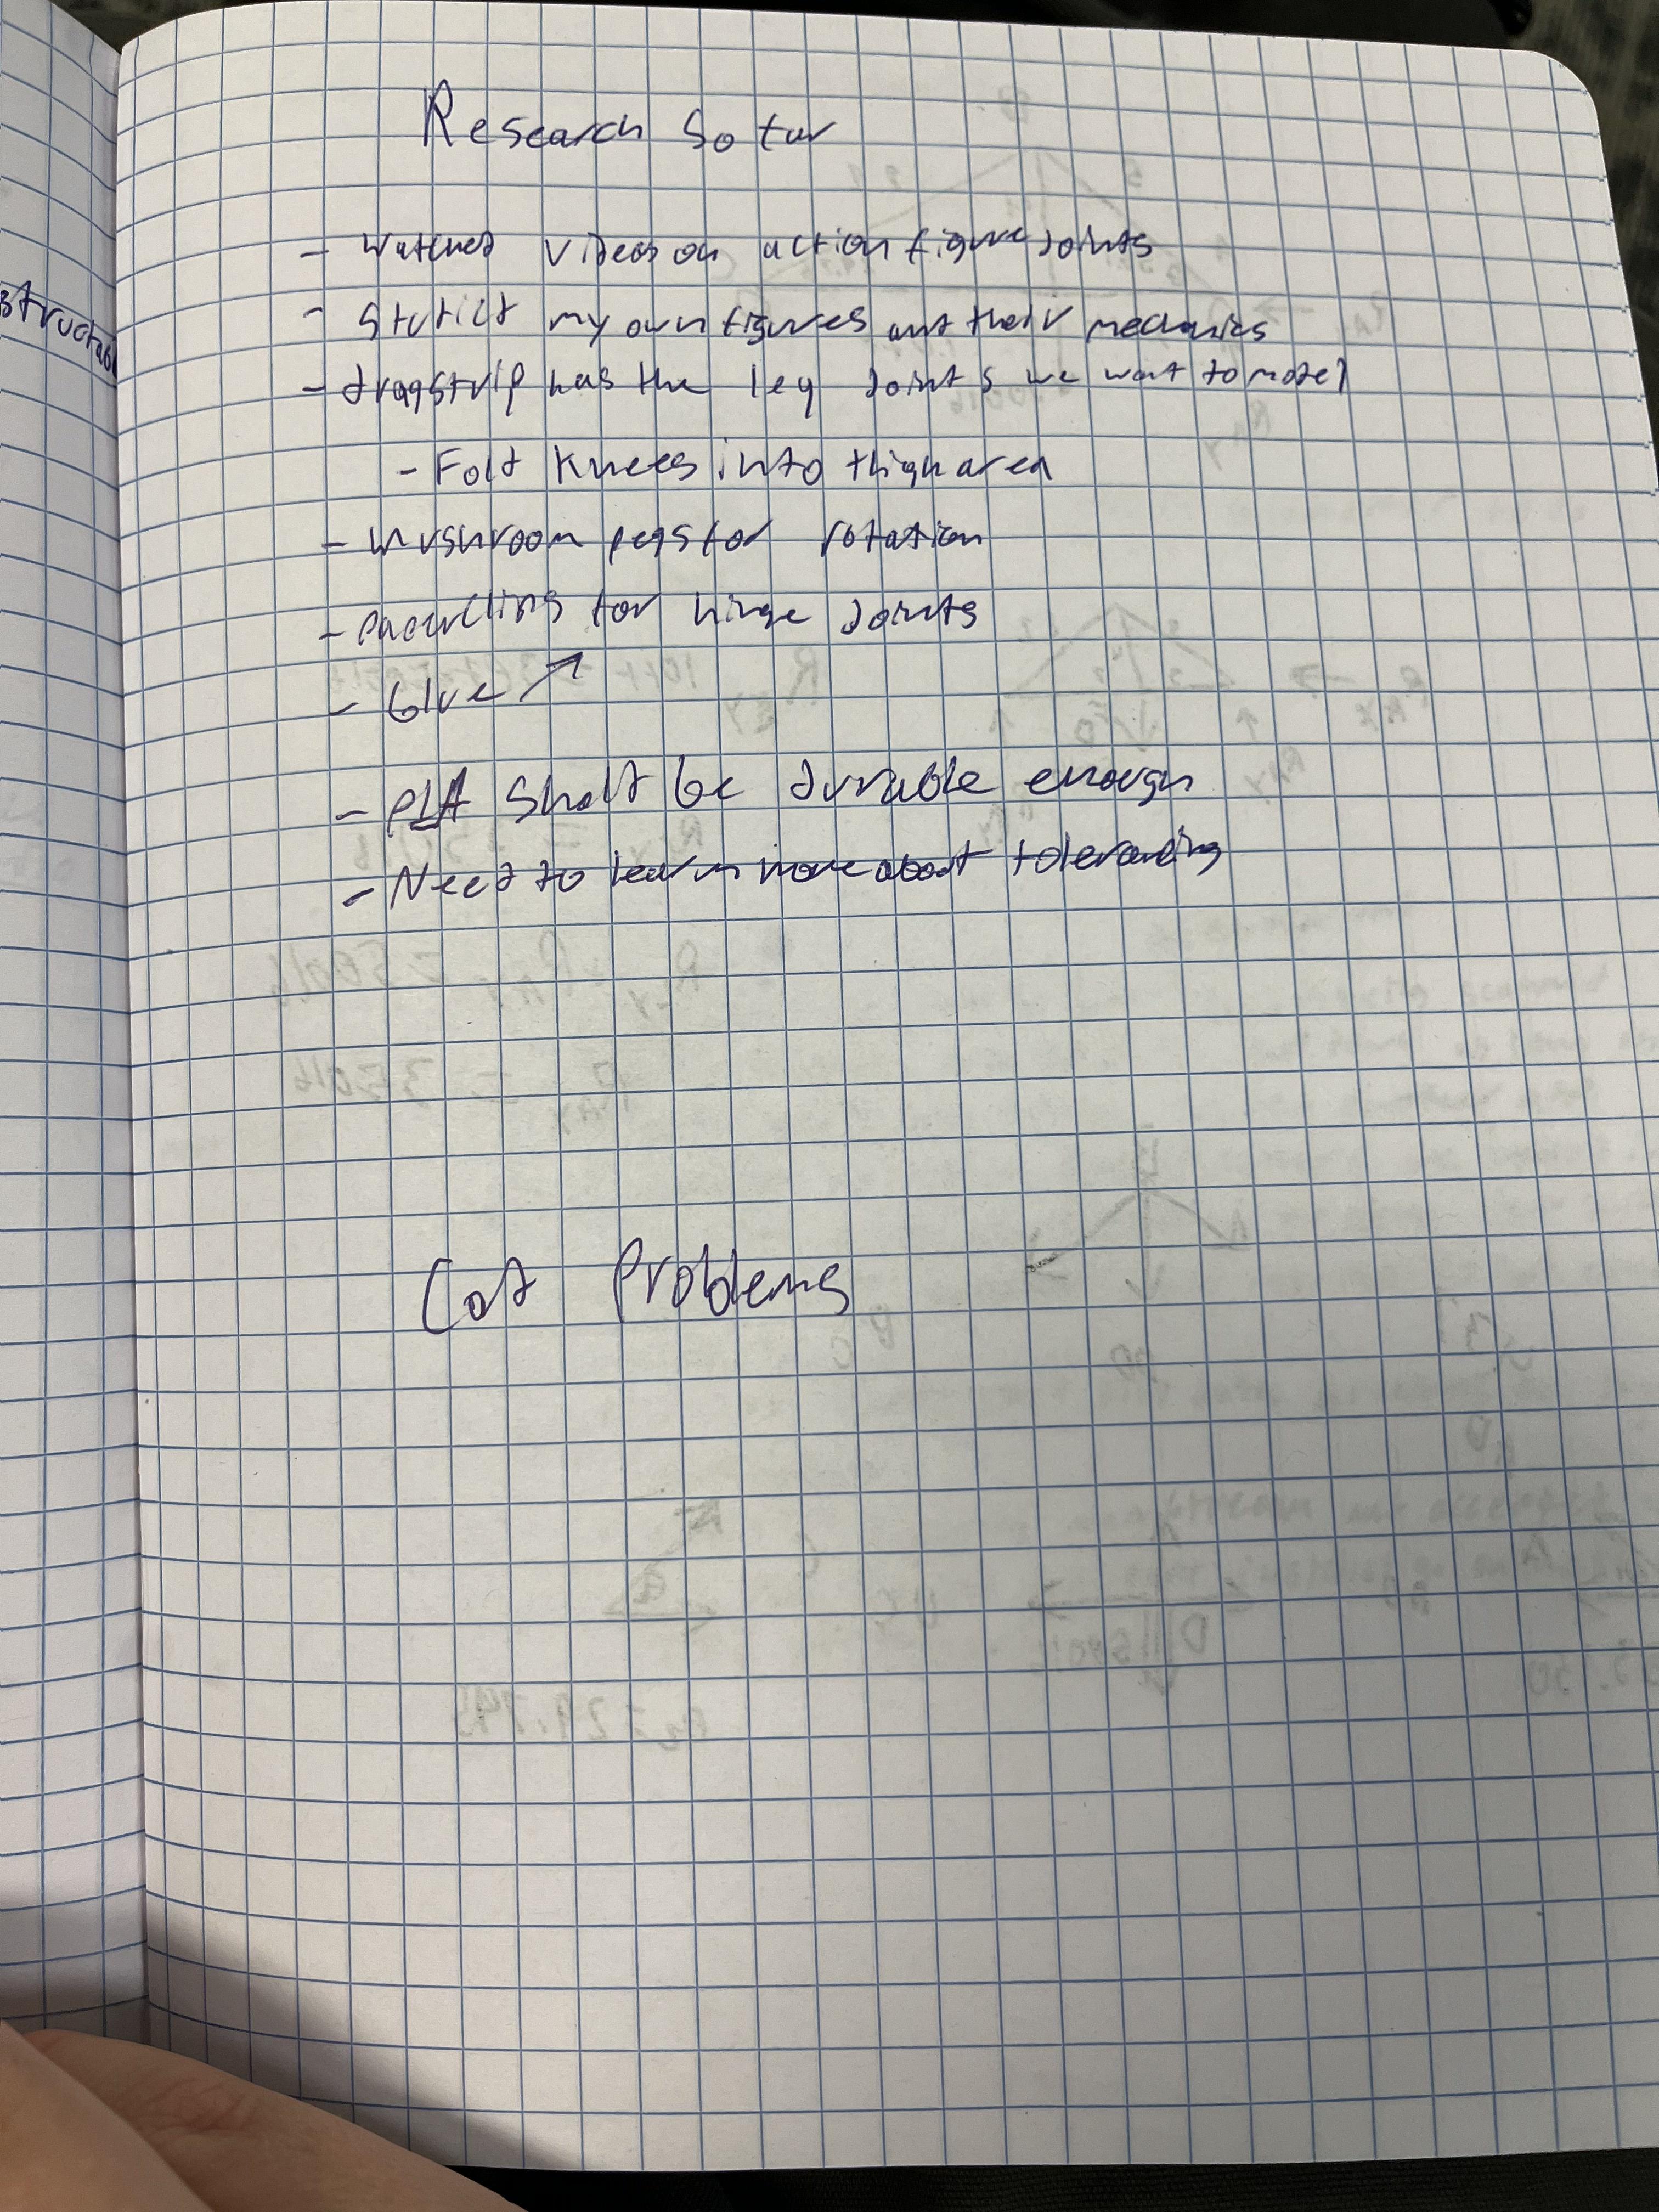 Research So far
- Watched videos on action figure joints
- Studied my own figures and their mechanics
- dragstrip has the leg joints we want to model
- Fold knees into thigh area
- mushroom pegs for rotation
- for hinge joints
- Glue ↗
- PLA should be durable enough
- Need to learn more about tolerancing
Cad Problems